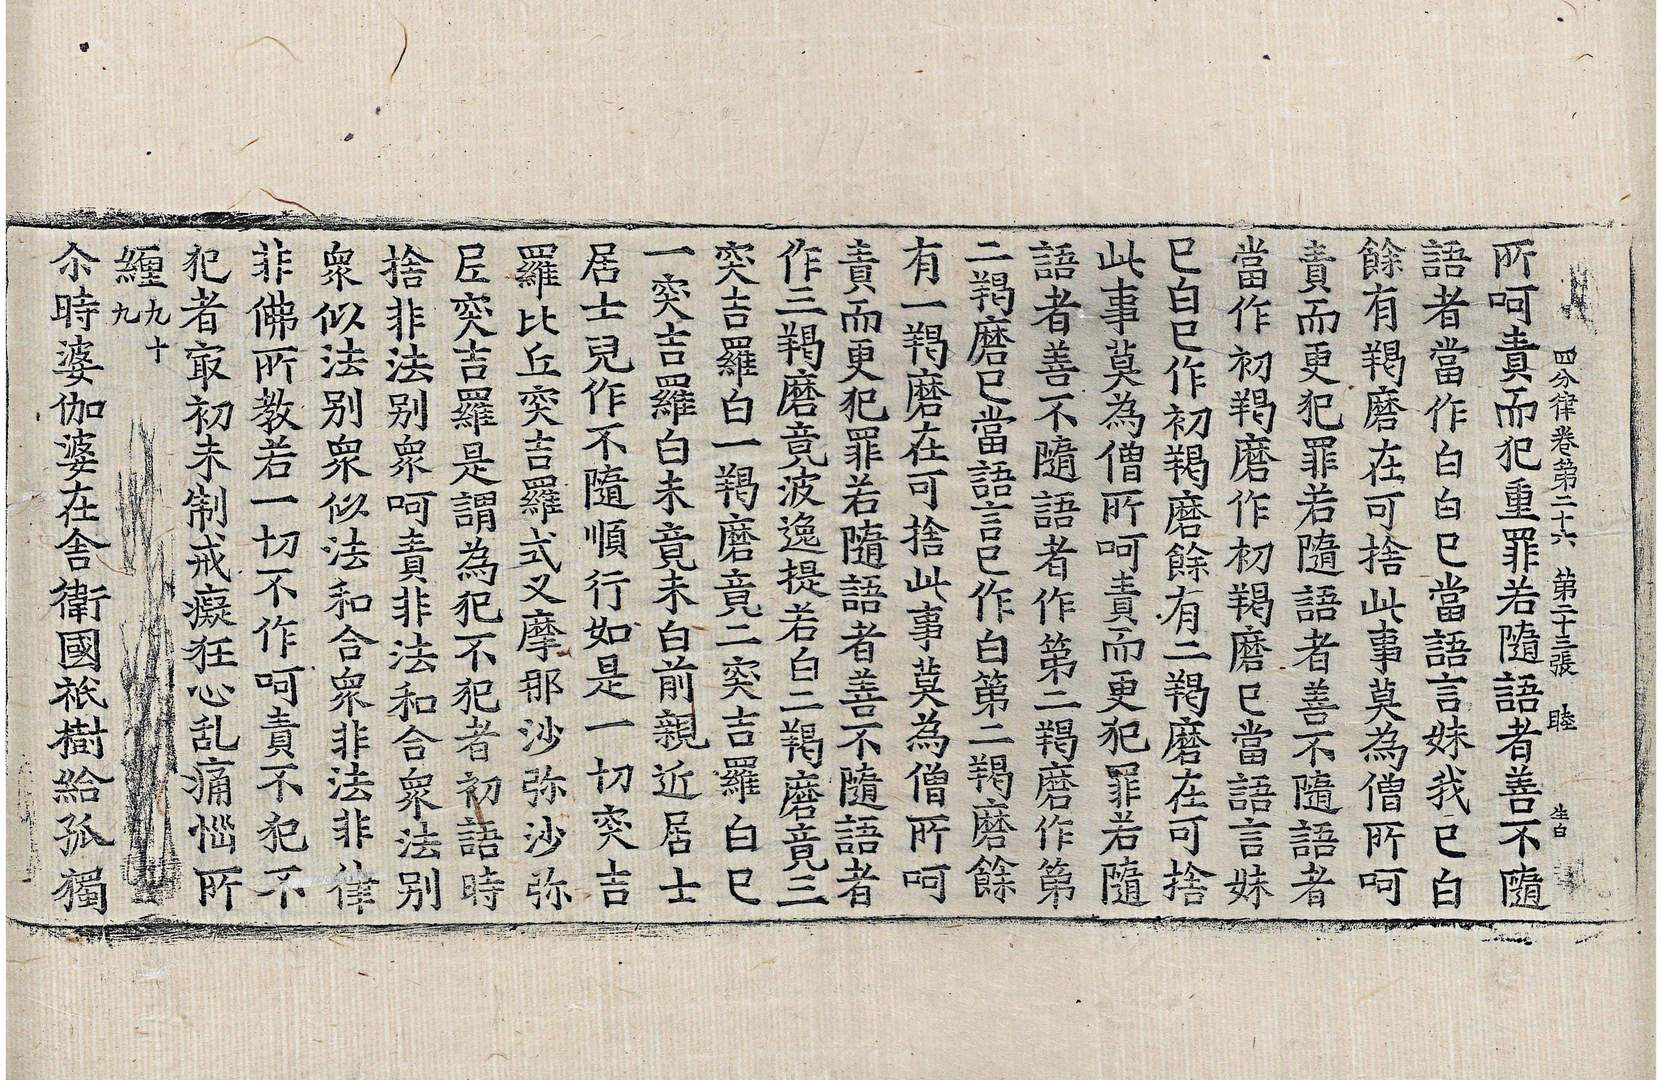 四分律卷第二十六　第二十三張　睦　生白
所呵責而犯重罪若隨語者善不隨
語者當作白白巳當語言妹我巳白
餘有羯磨在可捨此事莫為僧所呵
責而更犯罪若隨語者善不隨語者
當作初羯磨作初羯磨巳當語言妹
巳白巳作初羯磨餘有二羯磨在可捨
此事莫為僧所呵責而更犯罪若隨
語者善不隨語者作第二羯磨作第
二羯磨巳當語言巳作白第二羯磨餘
有一羯磨在可捨此事莫為僧所呵
責而更犯罪若隨語者善不隨語者
作三羯磨竟波逸提若白二羯磨竟三
突吉羅白一羯磨竟二突吉羅白巳
一突吉羅白未竟未白前親近居士
居士兒作不隨順行如是一切突吉
羅比丘突吉羅式叉摩那沙弥沙弥
尼突吉羅是謂為犯不犯者初語時
捨非法别衆呵責非法和合衆法别
衆似法别衆似法和合衆非法非律
非佛所教若一切不作呵責不犯不
犯者㝡初未制戒癡狂心乱痛惱所
纏九十九
尒時婆伽婆在舍衛國祇樹給孤獨